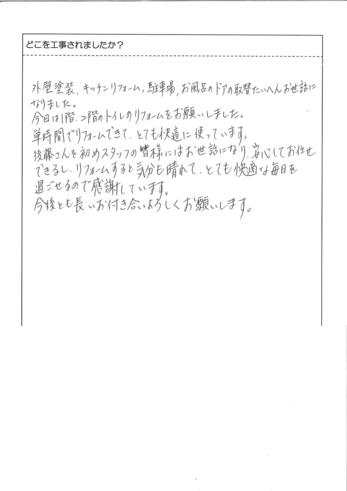 どこを工事されましたか？
外壁塗装、キッチンリフォーム、駐車場、お風呂のドアの取替たいへんお世話に
なりました。
今日は1階、2階のトイレのリフォームをお願いしました。
単時間でリフォームできて、とても快適に使っています。
後藤さんを初めスタッフの皆様にはお世話になり、安心してお任せ
できるし、リフォームすると気分も晴れて、とても快適な毎日を
過ごせるので感謝しています。
今後とも長いお付き合いよろしくお願いします。